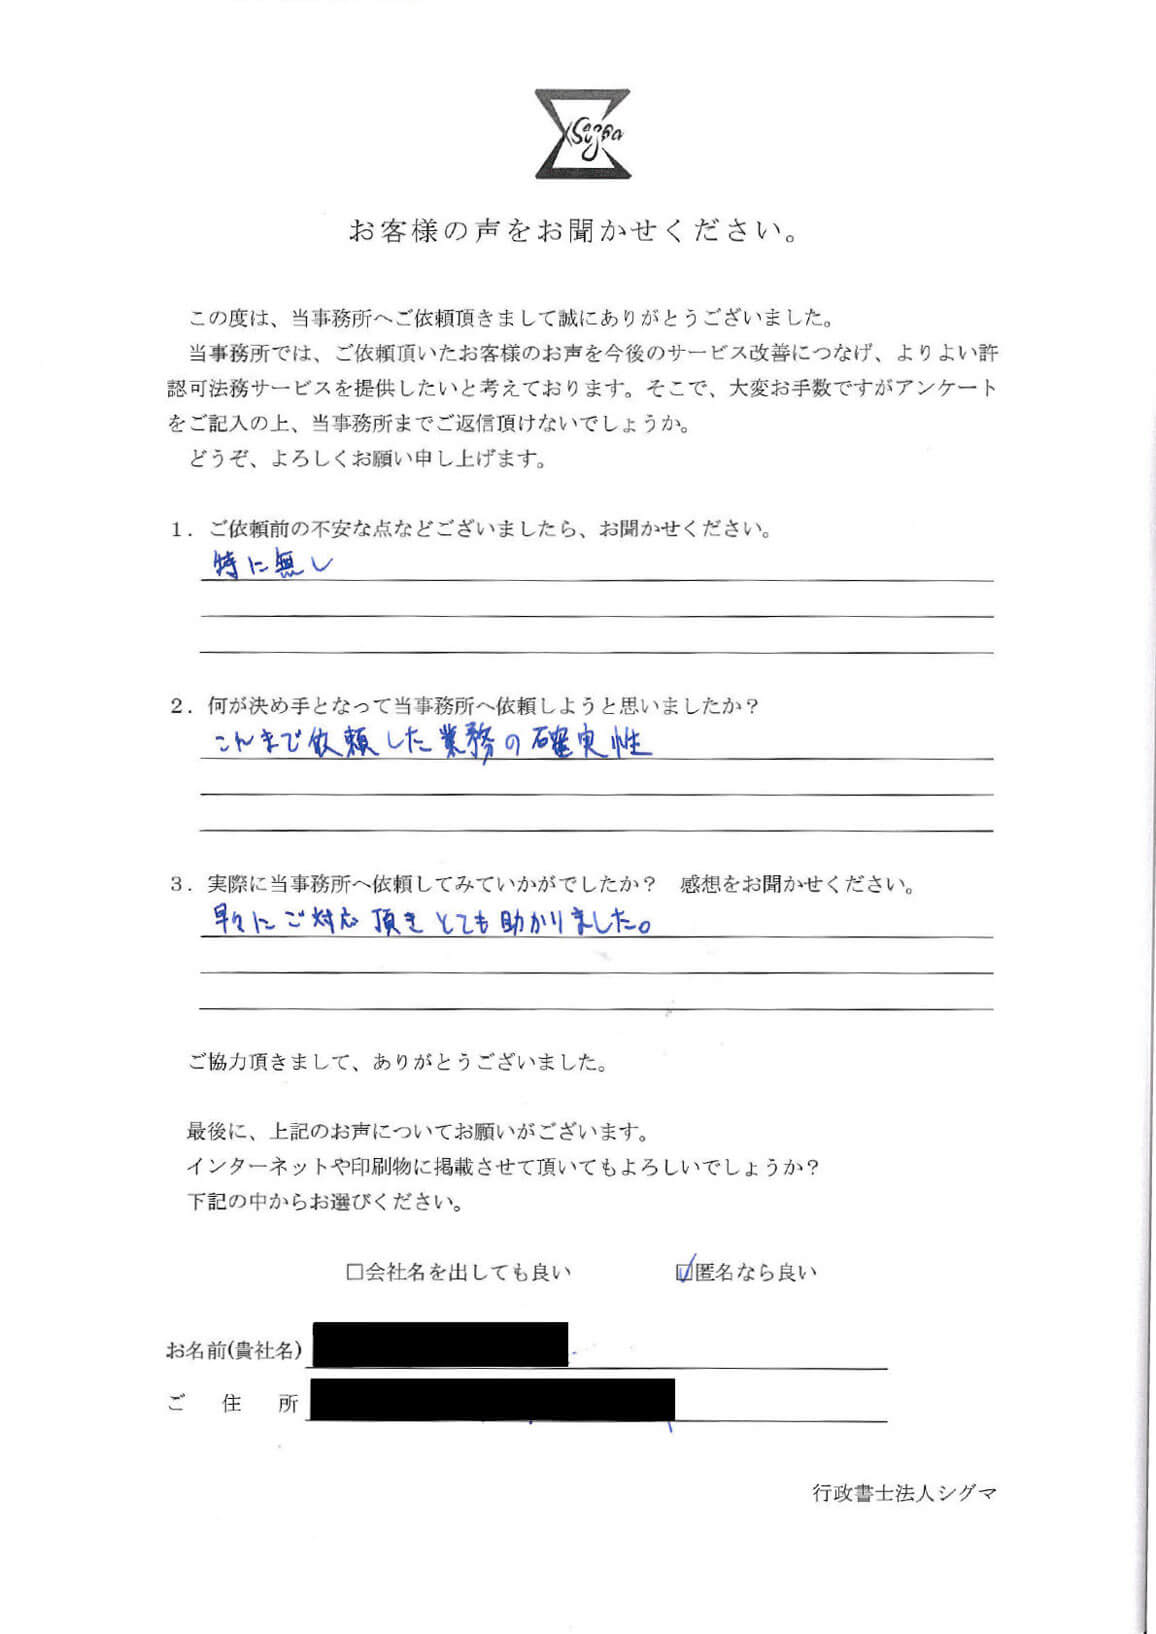 Sigma
お客様の声をお聞かせください。
この度は、当事務所へご依頼頂きまして誠にありがとうございました。
当事務所では、ご依頼頂いたお客様のお声を今後のサービス改善につなげ、よりよい許
認可法務サービスを提供したいと考えております。そこで、大変お手数ですがアンケート
をご記入の上、当事務所までご返信頂けないでしょうか。
どうぞ、よろしくお願い申し上げます。
１．ご依頼前の不安な点などございましたら、お聞かせください。
特に無し
２．何が決め手となって当事務所へ依頼しようと思いましたか？
これまで依頼した業務の確実性
３．実際に当事務所へ依頼してみていかがでしたか？　感想をお聞かせください。
早々にご対応頂きとても助かりました。
ご協力頂きまして、ありがとうございました。
最後に、上記のお声についてお願いがございます。
インターネットや印刷物に掲載させて頂いてもよろしいでしょうか？
下記の中からお選びください。
□会社名を出しても良い　☑匿名なら良い
お名前(貴社名)
ご　住　所
行政書士法人シグマ